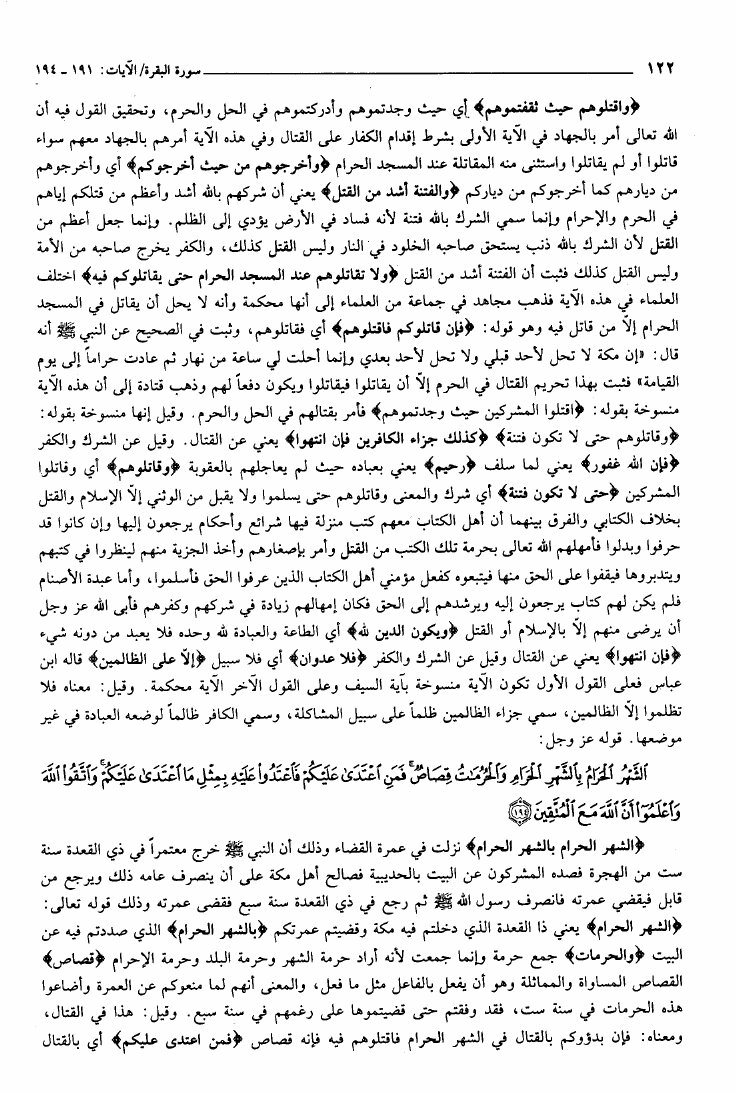 ١٢٢ ــــــــــ سورة البقرة/ الآيات: ١٩١ - ١٩٤
﴿واقتلوهم حيث ثقفتموهم﴾ أي حيث وجدتموهم وأدركتموهم في الحل والحرم، وتحقيق القول فيه أن
الله تعالى أمر بالجهاد في الآية الأولى بشرط إقدام الكفار على القتال وفي هذه الآية أمرهم بالجهاد معهم سواء
قاتلوا أو لم يقاتلوا واستثنى منه المقاتلة عند المسجد الحرام ﴿وأخرجوهم من حيث أخرجوكم﴾ أي وأخرجوهم
من ديارهم كما أخرجوكم من دياركم ﴿والفتنة أشد من القتل﴾ يعني أن شركهم بالله أشد وأعظم من قتلكم إياهم
في الحرم والإحرام وإنما سمي الشرك بالله فتنة لأنه فساد في الأرض يؤدي إلى الظلم. وإنما جعل أعظم من
القتل لأن الشرك بالله ذنب يستحق صاحبه الخلود في النار وليس القتل كذلك، والكفر يخرج صاحبه من الأمة
وليس القتل كذلك فثبت أن الفتنة أشد من القتل ﴿ولا تقاتلوهم عند المسجد الحرام حتى يقاتلوكم فيه﴾ اختلف
العلماء في هذه الآية فذهب مجاهد في جماعة من العلماء إلى أنها محكمة وأنه لا يحل أن يقاتل في المسجد
الحرام إلاّ من قاتل فيه وهو قوله: ﴿فإن قاتلوكم فاقتلوهم﴾ أي فقاتلوهم، وثبت في الصحيح عن النبي ﷺ أنه
قال: «إن مكة لا تحل لأحد قبلي ولا تحل لأحد بعدي وإنما أحلت لي ساعة من نهار ثم عادت حراماً إلى يوم
القيامة» فثبت بهذا تحريم القتال في الحرم إلاّ أن يقاتلوا فيقاتلوا ويكون دفعاً لهم وذهب قتادة إلى أن هذه الآية
منسوخة بقوله: ﴿اقتلوا المشركين حيث وجدتموهم﴾ فأمر بقتالهم في الحل والحرم. وقيل إنها منسوخة بقوله:
﴿وقاتلوهم حتى لا تكون فتنة﴾ ﴿كذلك جزاء الكافرين فإن انتهوا﴾ يعني عن القتال. وقيل عن الشرك والكفر
﴿فإن الله غفور﴾ يعني لما سلف ﴿رحيم﴾ يعني بعباده حيث لم يعاجلهم بالعقوبة ﴿وقاتلوهم﴾ أي وقاتلوا
المشركين ﴿حتى لا تكون فتنة﴾ أي شرك والمعنى وقاتلوهم حتى يسلموا ولا يقبل من الوثني إلاّ الإسلام والقتل
بخلاف الكتابي والفرق بينهما أن أهل الكتاب معهم كتب منزلة فيها شرائع وأحكام يرجعون إليها وإن كانوا قد
حرفوا وبدلوا فأمهلهم الله تعالى بحرمة تلك الكتب من القتل وأمر بإصغارهم وأخذ الجزية منهم لينظروا في كتبهم
ويتدبروها فيقفوا على الحق منها فيتبعوه كفعل مؤمني أهل الكتاب الذين عرفوا الحق فأسلموا، وأما عبدة الأصنام
فلم يكن لهم كتاب يرجعون إليه ويرشدهم إلى الحق فكان إمهالهم زيادة في شركهم وكفرهم فأبى الله عز وجل
أن يرضى منهم إلاّ بالإسلام أو القتل ﴿ويكون الدين لله﴾ أي الطاعة والعبادة لله وحده فلا يعبد من دونه شيء
﴿فإن انتهوا﴾ يعني عن القتال وقيل عن الشرك والكفر ﴿فلا عدوان﴾ أي فلا سبيل ﴿إلاّ على الظالمين﴾ قاله ابن
عباس فعلى القول الأول تكون الآية منسوخة بآية السيف وعلى القول الآخر الآية محكمة. وقيل: معناه فلا
تظلموا إلاّ الظالمين، سمي جزاء الظالمين ظلماً على سبيل المشاكلة، وسمي الكافر ظالماً لوضعه العبادة في غير
موضعها. قوله عز وجل:
ٱلشَّهْرُ ٱلْحَرَامُ بِٱلشَّهْرِ ٱلْحَرَامِ وَٱلْحُرُمَٰتُ قِصَاصٌ ۚ فَمَنِ ٱعْتَدَىٰ عَلَيْكُمْ فَٱعْتَدُوا۟ عَلَيْهِ بِمِثْلِ مَا ٱعْتَدَىٰ عَلَيْكُمْ ۚ وَٱتَّقُوا۟ ٱللَّهَ
وَٱعْلَمُوٓا۟ أَنَّ ٱللَّهَ مَعَ ٱلْمُتَّقِينَ ﴿١٩٤﴾
﴿الشهر الحرام بالشهر الحرام﴾ نزلت في عمرة القضاء وذلك أن النبي ﷺ خرج معتمراً في ذي القعدة سنة
ست من الهجرة فصده المشركون عن البيت بالحديبية فصالح أهل مكة على أن ينصرف عامه ذلك ويرجع من
قابل فيقضي عمرته فانصرف رسول الله ﷺ ثم رجع في ذي القعدة سنة سبع فقضى عمرته وذلك قوله تعالى:
﴿الشهر الحرام﴾ يعني ذا القعدة الذي دخلتم فيه مكة وقضيتم عمرتكم ﴿بالشهر الحرام﴾ الذي صددتم فيه عن
البيت ﴿والحرمات﴾ جمع حرمة وإنما جمعت لأنه أراد حرمة الشهر وحرمة البلد وحرمة الإحرام ﴿قصاص﴾
القصاص المساواة والمماثلة وهو أن يفعل بالفاعل مثل ما فعل، والمعنى أنهم لما منعوكم عن العمرة وأضاعوا
هذه الحرمات في سنة ست، فقد وفقتم حتى قضيتموها على رغمهم في سنة سبع. وقيل: هذا في القتال،
ومعناه: فإن بدؤوكم بالقتال في الشهر الحرام فاقتلوهم فيه فإنه قصاص ﴿فمن اعتدى عليكم﴾ أي بالقتال